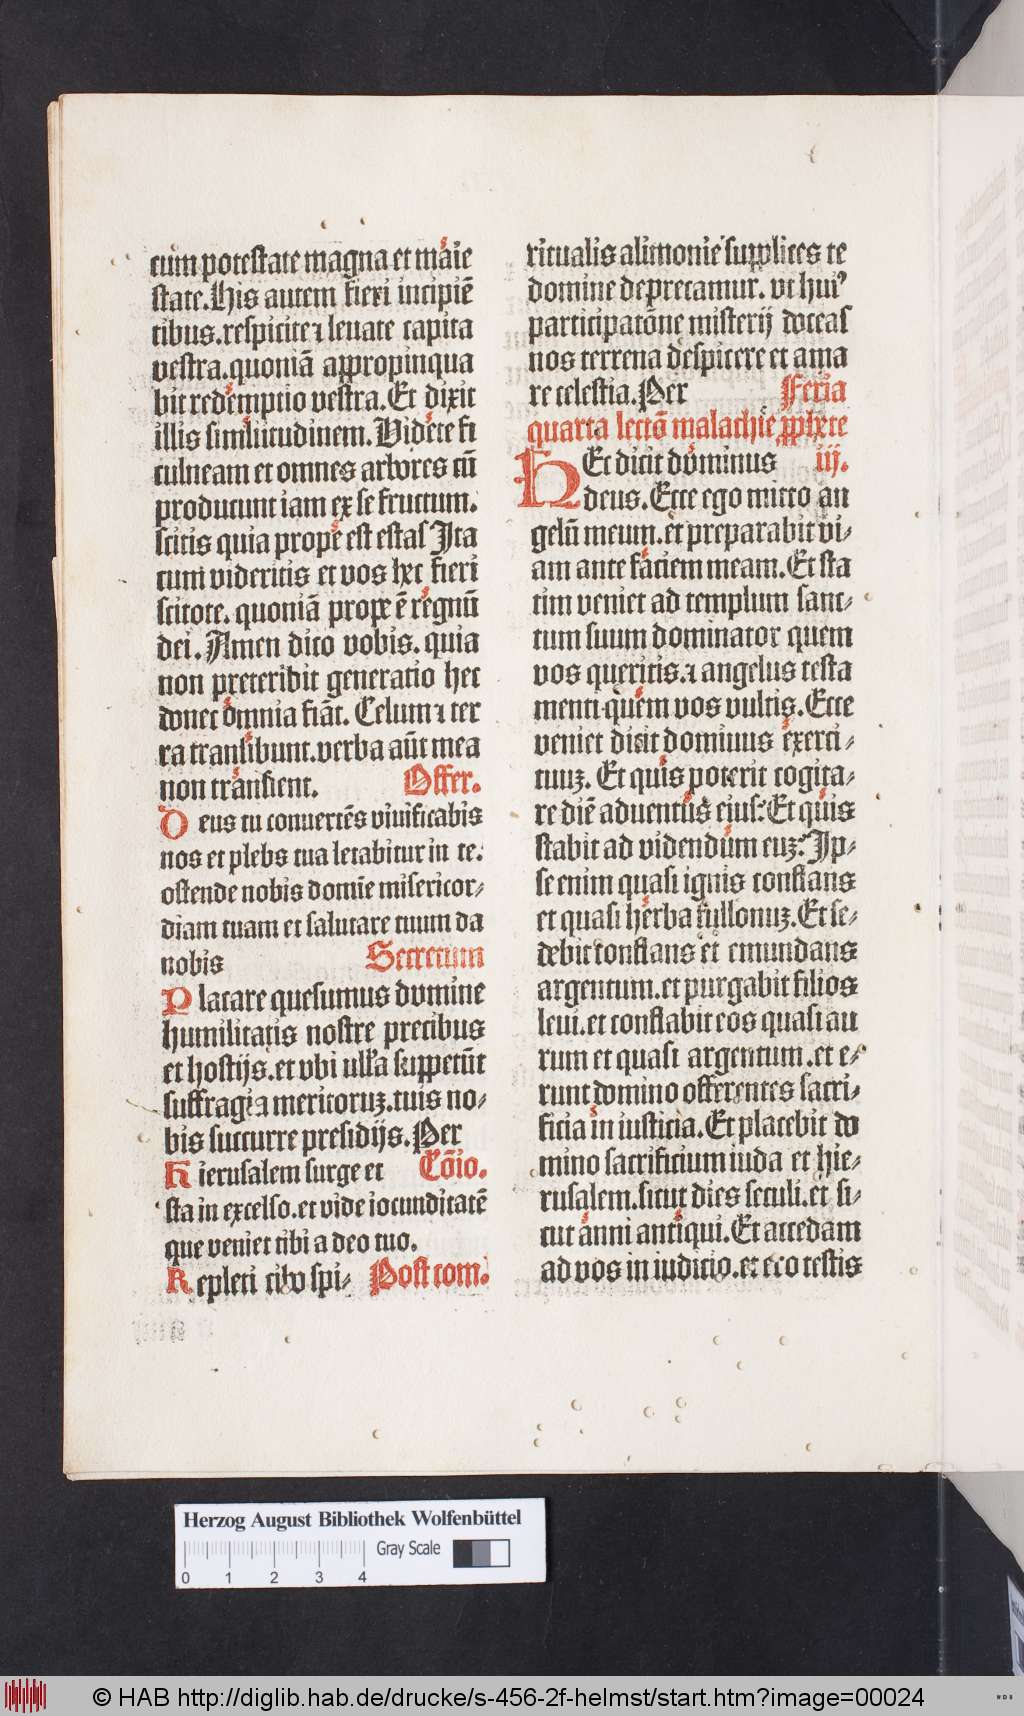 cum potestate magna et maie
state. His autem fieri incipiē
tibus. respicite ⁊ leuate capita
vestra. quoniā appropinqua
bit redemptio vestra. Et dixit
illis similitudinem. Videte fi
culneam et omnes arbores cū
producunt iam ex se fructum.
scitis quia prope est estas Ita
cum videritis et vos hec fieri
scitote. quoniā prope ē regnū
dei. Amen dico vobis. quia
non preteribit generatio hec
donec omnia fiāt. Celum ⁊ ter
ra transibunt. verba aūt mea
non transient. Offer.
Deus tu conuertēs viuificabis
nos et plebs tua letabitur in te.
ostende nobis domīe misericor-
diam tuam et salutare tuum da
nobis Secretum
Placare quesumus domine
humilitatis nostre precibus
et hostijs. et vbi ulla suppetūt
suffragia meritoruꝫ. tuis no-
bis succurre presidijs. Per
Hierusalem surge et Cōio.
sta in excelso. et vide iocunditatē
que veniet tibi a deo tuo.
Repleti cibo spi- Post com.
ritualis alimonie supplices te
domine deprecamur. vt huiꝰ
participatōne misterij doceas
nos terrena despicere et ama
re celestia. Per Feria
quarta lectō malachie ꝓphete
HEc dicit dominus iij.
deus. Ecce ego mitto an
gelū meum. et preparabit vi-
am ante faciem meam. Et sta
tim veniet ad templum sanc-
tum suum dominator quem
vos queritis. ⁊ angelus testa
menti quem vos vultis. Ecce
veniet dicit dominus exerci-
tuuꝫ. Et quis poterit cogita-
re diē aduentus eius? Et quis
stabit ad videndum euꝫ? Ip-
se enim quasi ignis conflans
et quasi herba fullonuꝫ. Et se-
debit conflans et emundans
argentum. et purgabit filios
leui. et conflabit eos quasi au
rum et quasi argentum. et e-
runt domino offerentes sacri-
ficia in iusticia. Et placebit do
mino sacrificium iuda et hie-
rusalem. sicut dies seculi. et si-
cut anni antiqui. Et accedam
ad vos in iudicio. et ero testis
Herzog August Bibliothek Wolfenbüttel
Gray Scale
0 1 2 3 4
© HAB http://diglib.hab.de/drucke/s-456-2f-helmst/start.htm?image=00024